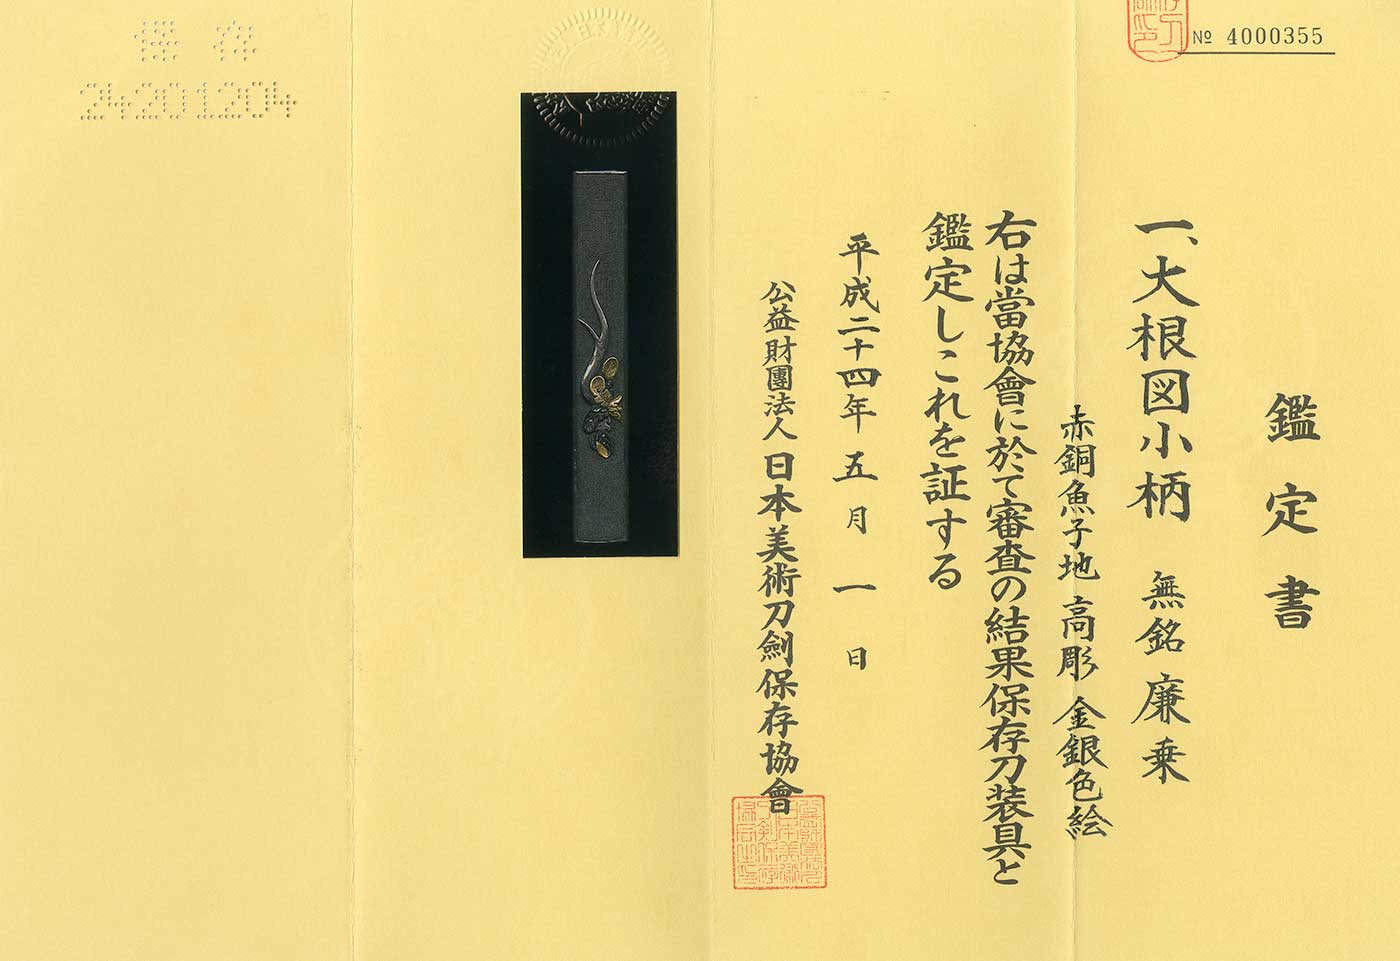 № 4000355
鑑定書
一、大根図小柄 無銘 廉乗
赤銅魚子地 高彫 金銀色絵
右は當協會に於て審査の結果保存刀装具と
鑑定しこれを証する
平成二十四年 五月 一日
公益財團法人日本美術刀劍保存協會
保存
24201204